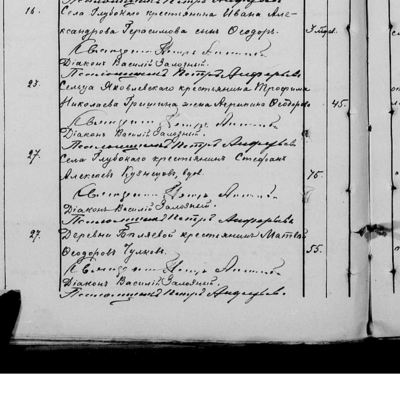 16. Села Глубокаго крестьянина Ивана Але-
ксандрова Герасимова сынъ Ѳеодоръ. 3 мѣс.
Священникъ Петръ
Діаконъ Василій Залѣзній.
Псаломщикъ Петръ Андреевъ
23. Сельца Яковлевскаго крестьянина Трофима
Николаева жена Агрипина Ѳеодоров 45.
Священникъ Петръ
Діаконъ Василій Залѣзній.
Псаломщикъ Петръ Андреевъ
27. Села Глубокаго крестьянинъ Стефанъ
Алексѣевъ Кузнецовъ, вдов. 75
Священникъ Петръ
Діаконъ Василій Залѣзній.
Псаломщикъ Петръ Андреевъ
27. Деревни Бѣляевой крестьянинъ Матвѣй
Ѳеодоровъ Чулковъ. 55.
Священникъ Петръ
Діаконъ Василій Залѣзній.
Псаломщикъ Петръ Андреевъ.